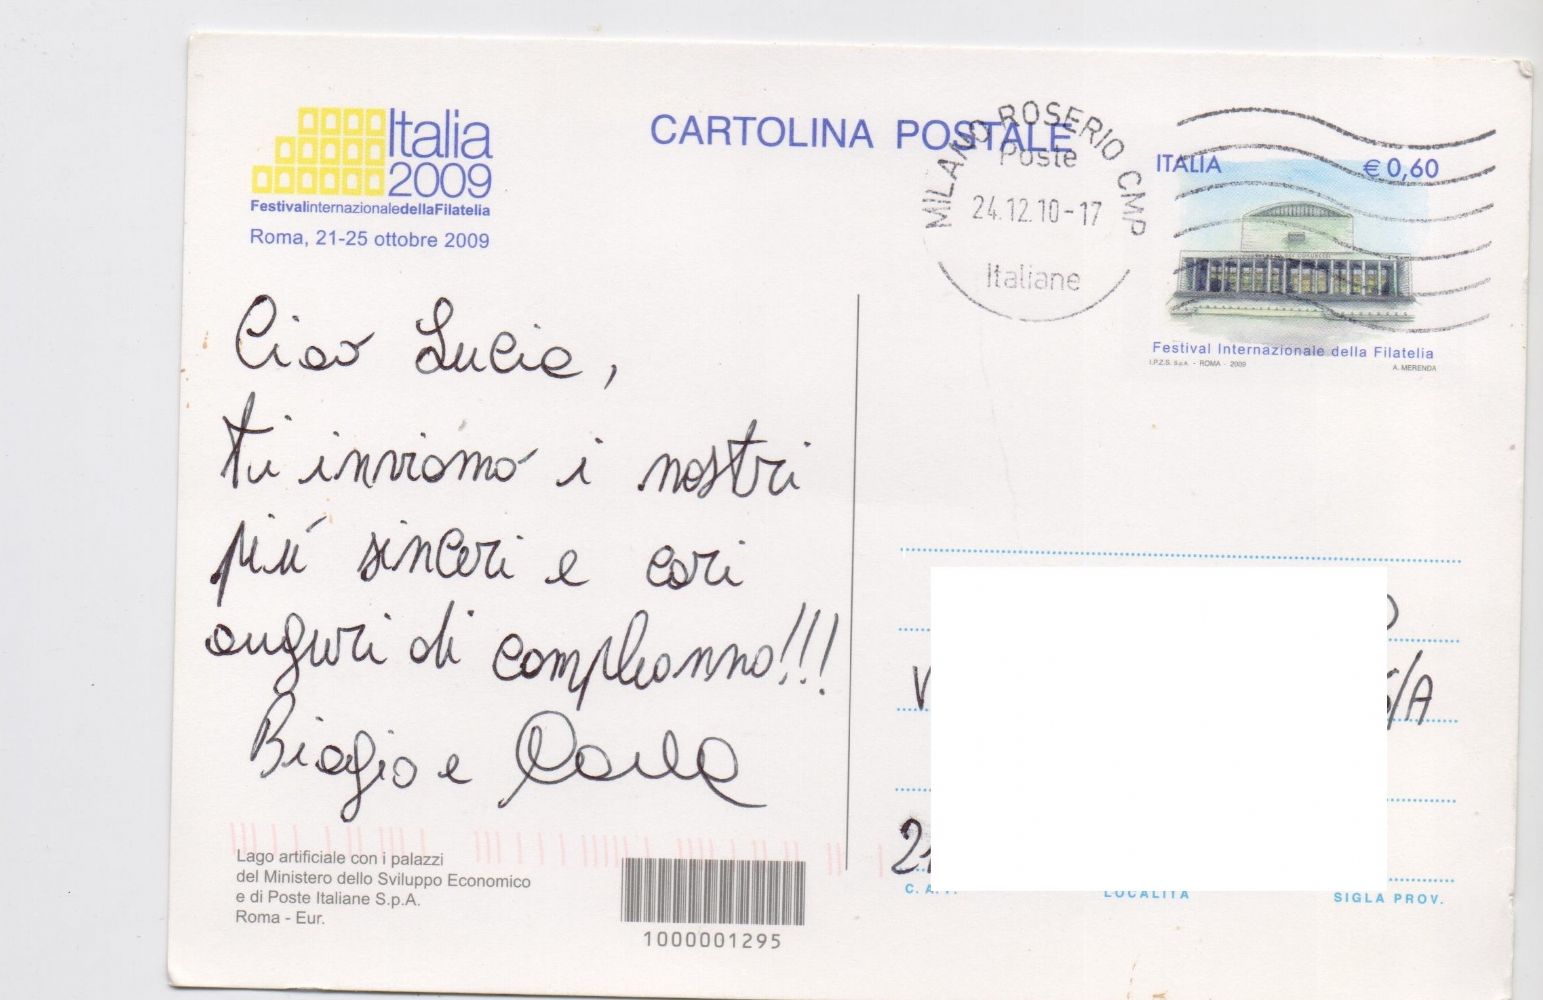 Italia
2009
FestivalinternazionaledellaFilatelia
Roma, 21-25 ottobre 2009
CARTOLINA POSTALE
MILANO ROSERIO CMP
Poste
24.12.10-17
Italiane
ITALIA €0,60
Festival Internazionale della Filatelia
I.P.Z.S. S.p.A. - ROMA - 2009 A. MERENDA
Ciao Lucia,
ti inviamo i nostri
più sinceri e cari
auguri di compleanno!!!
Biagio e Carla
Lago artificiale con i palazzi
del Ministero dello Sviluppo Economico
e di Poste Italiane S.p.A.
Roma - Eur.
1000001295
V /A
2
C. A. P. LOCALITÀ SIGLA PROV.